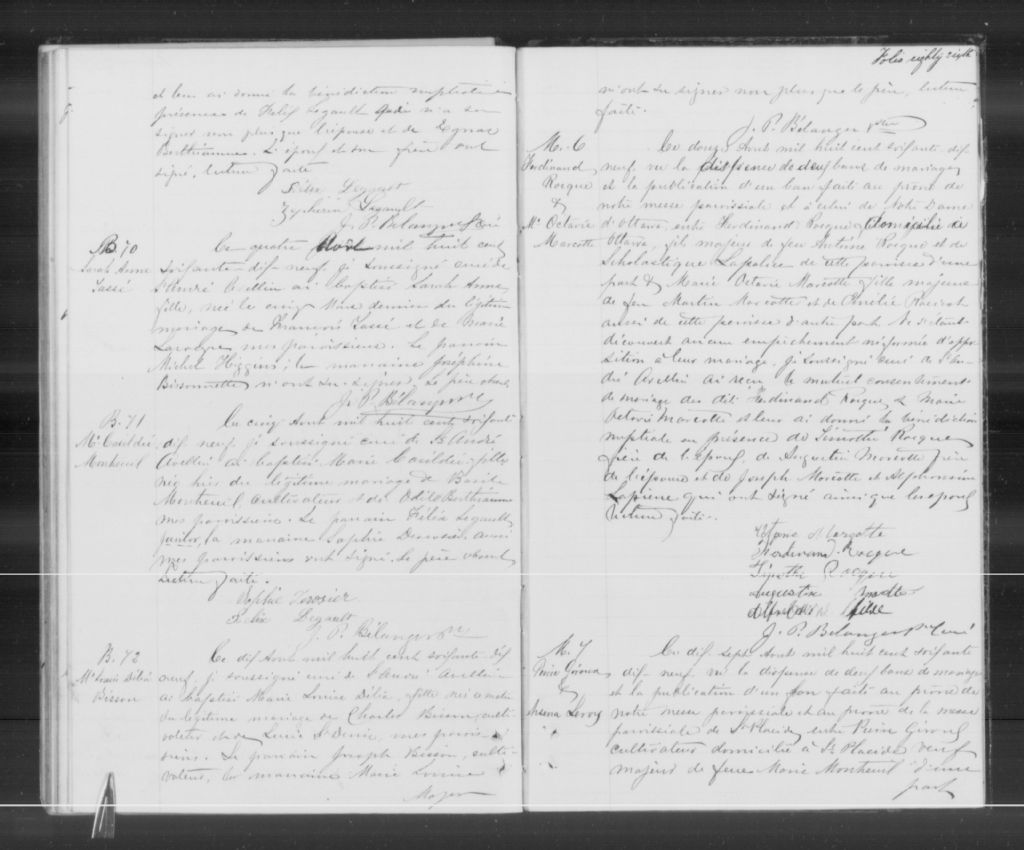 et leur ai donné la bénédiction nuptiale en
présence de Felix Legault qui n'a su
signer non plus que l'épouse et de Egnace
Berthiaume. L'époux et son père ont
signé, lecture faite
Félix Legault
Zepherin Legault
J. P. Bélanger Ptre Curé
B. 70
Sarah Anne
Lassé
Ce quatre Août mil huit cent
soixante-dix-neuf, je soussigné curé de
St André Avellin ai baptisé Sarah Anne
fille, née le cinq Mars dernier du légitime
mariage de François Lassé et de Marie
mes paroissiens. Le parrain
Michel Higgins; la marraine Joséphine
Bissonnette n'ont su signer. Le père absent
J. P. Bélanger Ptre
B. 71
Me Casildée
Montreuil
Ce cinq Août mil huit cent soixante
dix neuf, je soussigné curé de St André
Avellin ai baptisé Marie Casildée, fille
née hier du légitime mariage de Basile
Montreuil, cultivateur et de Odile Berthiaume
mes paroissiens. Le parrain Félix Legault
junior, la marraine Sophie Desrosier, aussi
mes paroissiens ont signé. Le père absent
Lecture faite.
Sophie Derosier
Felix Legault
J. P. Bélanger Ptre
B. 72
Me Louise Délia
Bisson
Ce dix Août mil huit cent soixante-dix
neuf, je soussigné curé de St André Avellin
ai baptisé Marie Louise Délia, fille née ce matin
du légitime mariage de Charles Bisson, culti-
vateur et de Lucie St Denis, mes parois-
siens. Le parrain Joseph Bisson, culti-
vateur, la marraine Marie Louise
Major
Folio eighty eight
n'ont su signer non plus que le père, lecture
faite.
J. P. Bélanger Ptre
M. 6
Ferdinand
Rocque
&
Me Octavie
Marcotte
Ce douze Août mil huit cent soixante dix
neuf, vu la dispense de deux bans de mariage
et la publication d'un ban faite au prone de
notre messe paroissiale et à celui de Notre Dame
d'Ottawa, entre Ferdinand Rocque domicilié de
Ottawa, fils majeur de feu Antoine Rocque et de
Scholastique Lapalice de cette paroisse d'une
part & Marie Octavie Marcotte fille majeure
de feu Martin Marcotte et de
aussi de cette paroisse d'autre part. Ne s'étant
découvert aucun empêchement ni formé d'oppo-
sition à leur mariage, je soussigné curé de St An-
dré Avellin ai reçu le mutuel consentement
de mariage des dits Ferdinand Rocque & Marie
Octavie Marcotte et leur ai donné la bénédiction
nuptiale en présence de Timothé Rocque
frère de l'époux, de Augustin Marcotte frère
de l'épouse et de Joseph Marcotte et Alphonsine
Lapierre qui ont signé ainsi que les époux
Lecture faite.
Marcotte
Ferdinand Rocque
Timothé Rocque
Augustin
J. P. Bélanger Ptre Curé
M. 7
Pierre Giroux
&
Leroy
Ce dix sept Août mil huit cent soixante
dix-neuf, vu la dispense de deux bans de mariage
et la publication d'un ban faite au prone de
notre messe paroissiale et au prone de la messe
paroissiale de St Placide, entre Pierre Giroux
cultivateur domicilié à St Placide, veuf
majeur de feue Marie Montreuil d'une
part